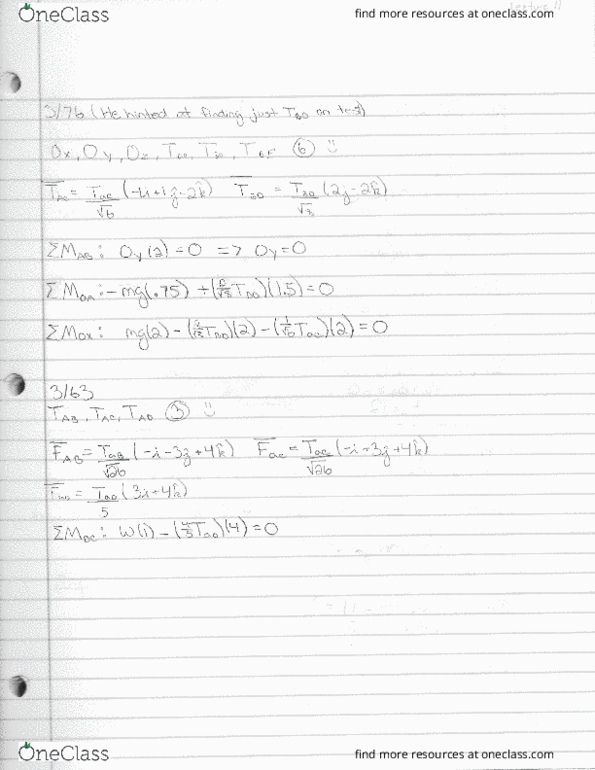 OneClass
find more resources at oneclass.com
3/76 (He hinted at finding just T_BD on test)
Ox, Oy, Oz, T_AC, T_BD, T_EF (6) :)
T_AC = T_AC/√6 (-1i+1j-2k̂) T_BD = T_BD/√8 (2j-2k̂)
ΣM_AB: Oy(2)=0 => Oy=0
ΣM_OA: -mg(.75) + (2/√8 T_BD)(1.5)=0
ΣM_OX: mg(2) - (2/√8 T_BD)(2) - (T_AC)(2)=0
3/63
T_AB, T_AC, T_AD (3) :)
F_AB = T_AB/√26 (-i-3j+4k̂) F_AC = T_AC/√26 (-i+3j+4k̂)
T_AD = T_AD/5 (3i+4k̂)
ΣM_BC: W(1) - (4/5 T_AD)(4)=0
OneClass
find more resources at oneclass.com